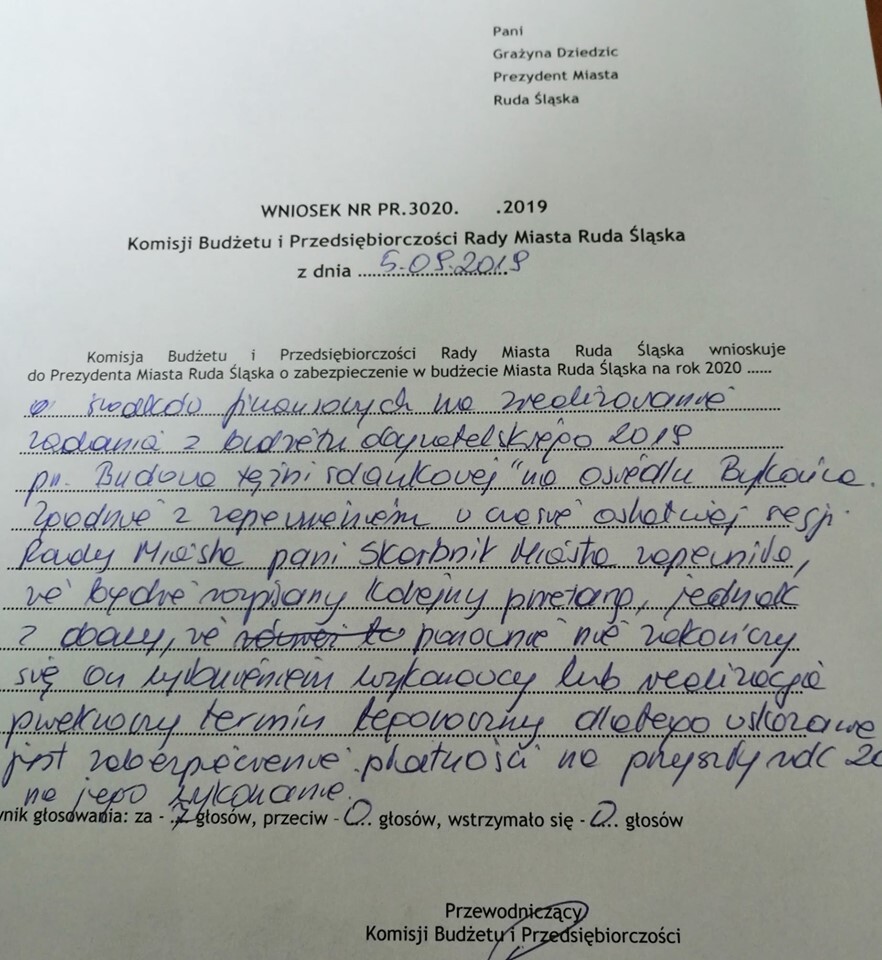 Pani
Grażyna Dziedzic
Prezydent Miasta
Ruda Śląska
WNIOSEK NR PR.3020. .2019
Komisji Budżetu i Przedsiębiorczości Rady Miasta Ruda Śląska
z dnia 5.09.2019
Komisja Budżetu i Przedsiębiorczości Rady Miasta Ruda Śląska wnioskuje
do Prezydenta Miasta Ruda Śląska o zabezpieczenie w budżecie Miasta Ruda Śląska na rok 2020 ......
środków finansowych na zrealizowanie
zadania z budżetu obywatelskiego 2019
pn. Budowa tężni solankowej "na osiedlu Bykowina.
Zgodnie z zapewnieniem w czasie ostatniej sesji
Rady Miasta pani Skarbnik Miasta zapewniła,
że będzie rozpisany kolejny przetarg, jednak
z obawy, że ponownie nie zakończy
się on wyłonieniem wykonawcy lub realizacja
przekroczy termin tegoroczny dlatego wskazane
jest zabezpieczenie płatności na przyszły rok 20
na jego wykonanie.
ynik głosowania: za - 7 głosów, przeciw - 0.. głosów, wstrzymało się - 0... głosów
Przewodniczący
Komisji Budżetu i Przedsiębiorczości